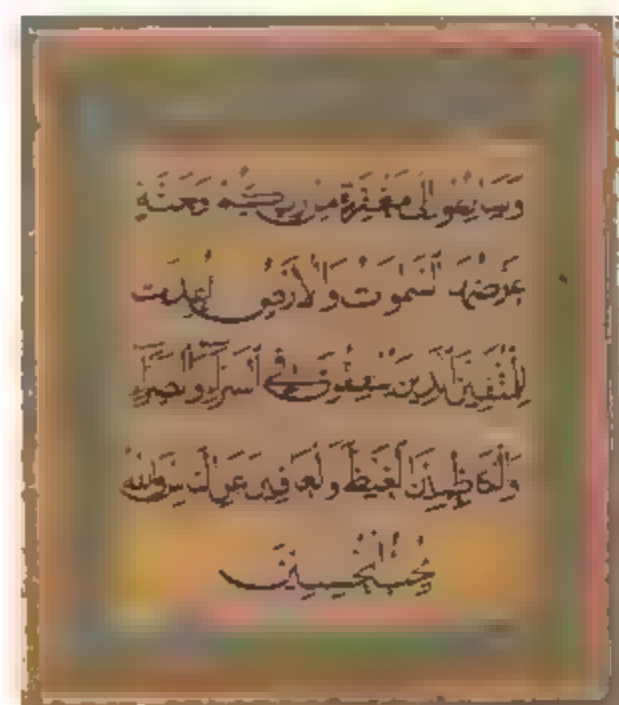 وَسَارِعُوا إِلَى مَغْفِرَةٍ مِنْ رَبِّكُمْ وَجَنَّةٍ
عَرْضُهَا السَّمٰوٰتُ وَالْأَرْضُ أُعِدَّتْ
لِلْمُتَّقِينَ الَّذِينَ يُنْفِقُونَ فِي السَّرَّاءِ وَالضَّرَّاءِ
وَالْكَاظِمِينَ الْغَيْظَ وَالْعَافِينَ عَنِ النَّاسِ وَاللهُ
يُحِبُّ الْمُحْسِنِينَ